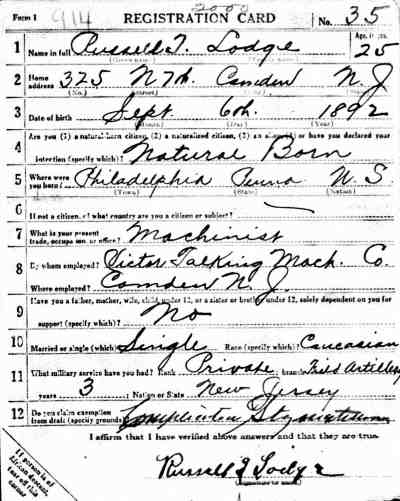 Form 1 914 REGISTRATION CARD 2000 No. 35
1 Name in full Russell T. Lodge Age, in yrs. 25
(Given name) (Family name)
2 Home address 325 N 7th. Camden N. J
(No.) (Street) (City) (State)
3 Date of birth Sept. 6th. 1892
(Month) (Day) (Year)
Are you (1) a natural-born citizen, (2) a naturalized citizen, (3) an alien, (4) or have you declared your
4 intention (specify which)? Natural Born
5 Where were you born? Philadelphia Penna U. S
(Town) (State) (Nation)
6 If not a citizen, of what country are you a citizen or subject?
7 What is your present trade, occupation, or office? Machinist
8 By whom employed? Victor Talking Mach. Co.
Where employed? Camden N. J.
9 Have you a father, mother, wife, child under 12, or a sister or brother under 12, solely dependent on you for
support (specify which)? No
10 Married or single (which)? Single Race (specify which)? Caucasian
11 What military service have you had? Rank Private; branch Field Artillery
years 3; Nation or State New Jersey
12 Do you claim exemption from draft (specify grounds)?
I affirm that I have verified above answers and that they are true.
Russell T Lodge
If person is of African descent, tear off this corner